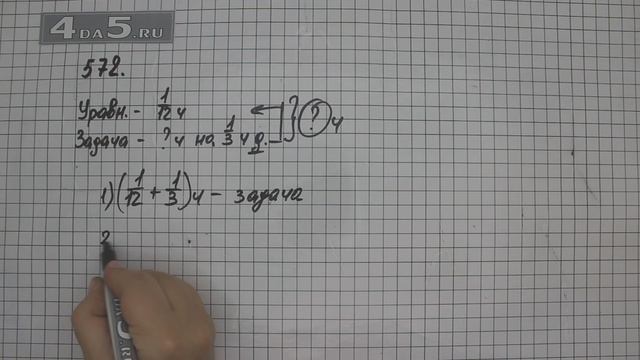 4DA5.RU
572.
Уравн. - 1/12 ч
Задача - ? ч на 1/3 ч д. } ? ч
1) (1/12 + 1/3) ч - задача
2